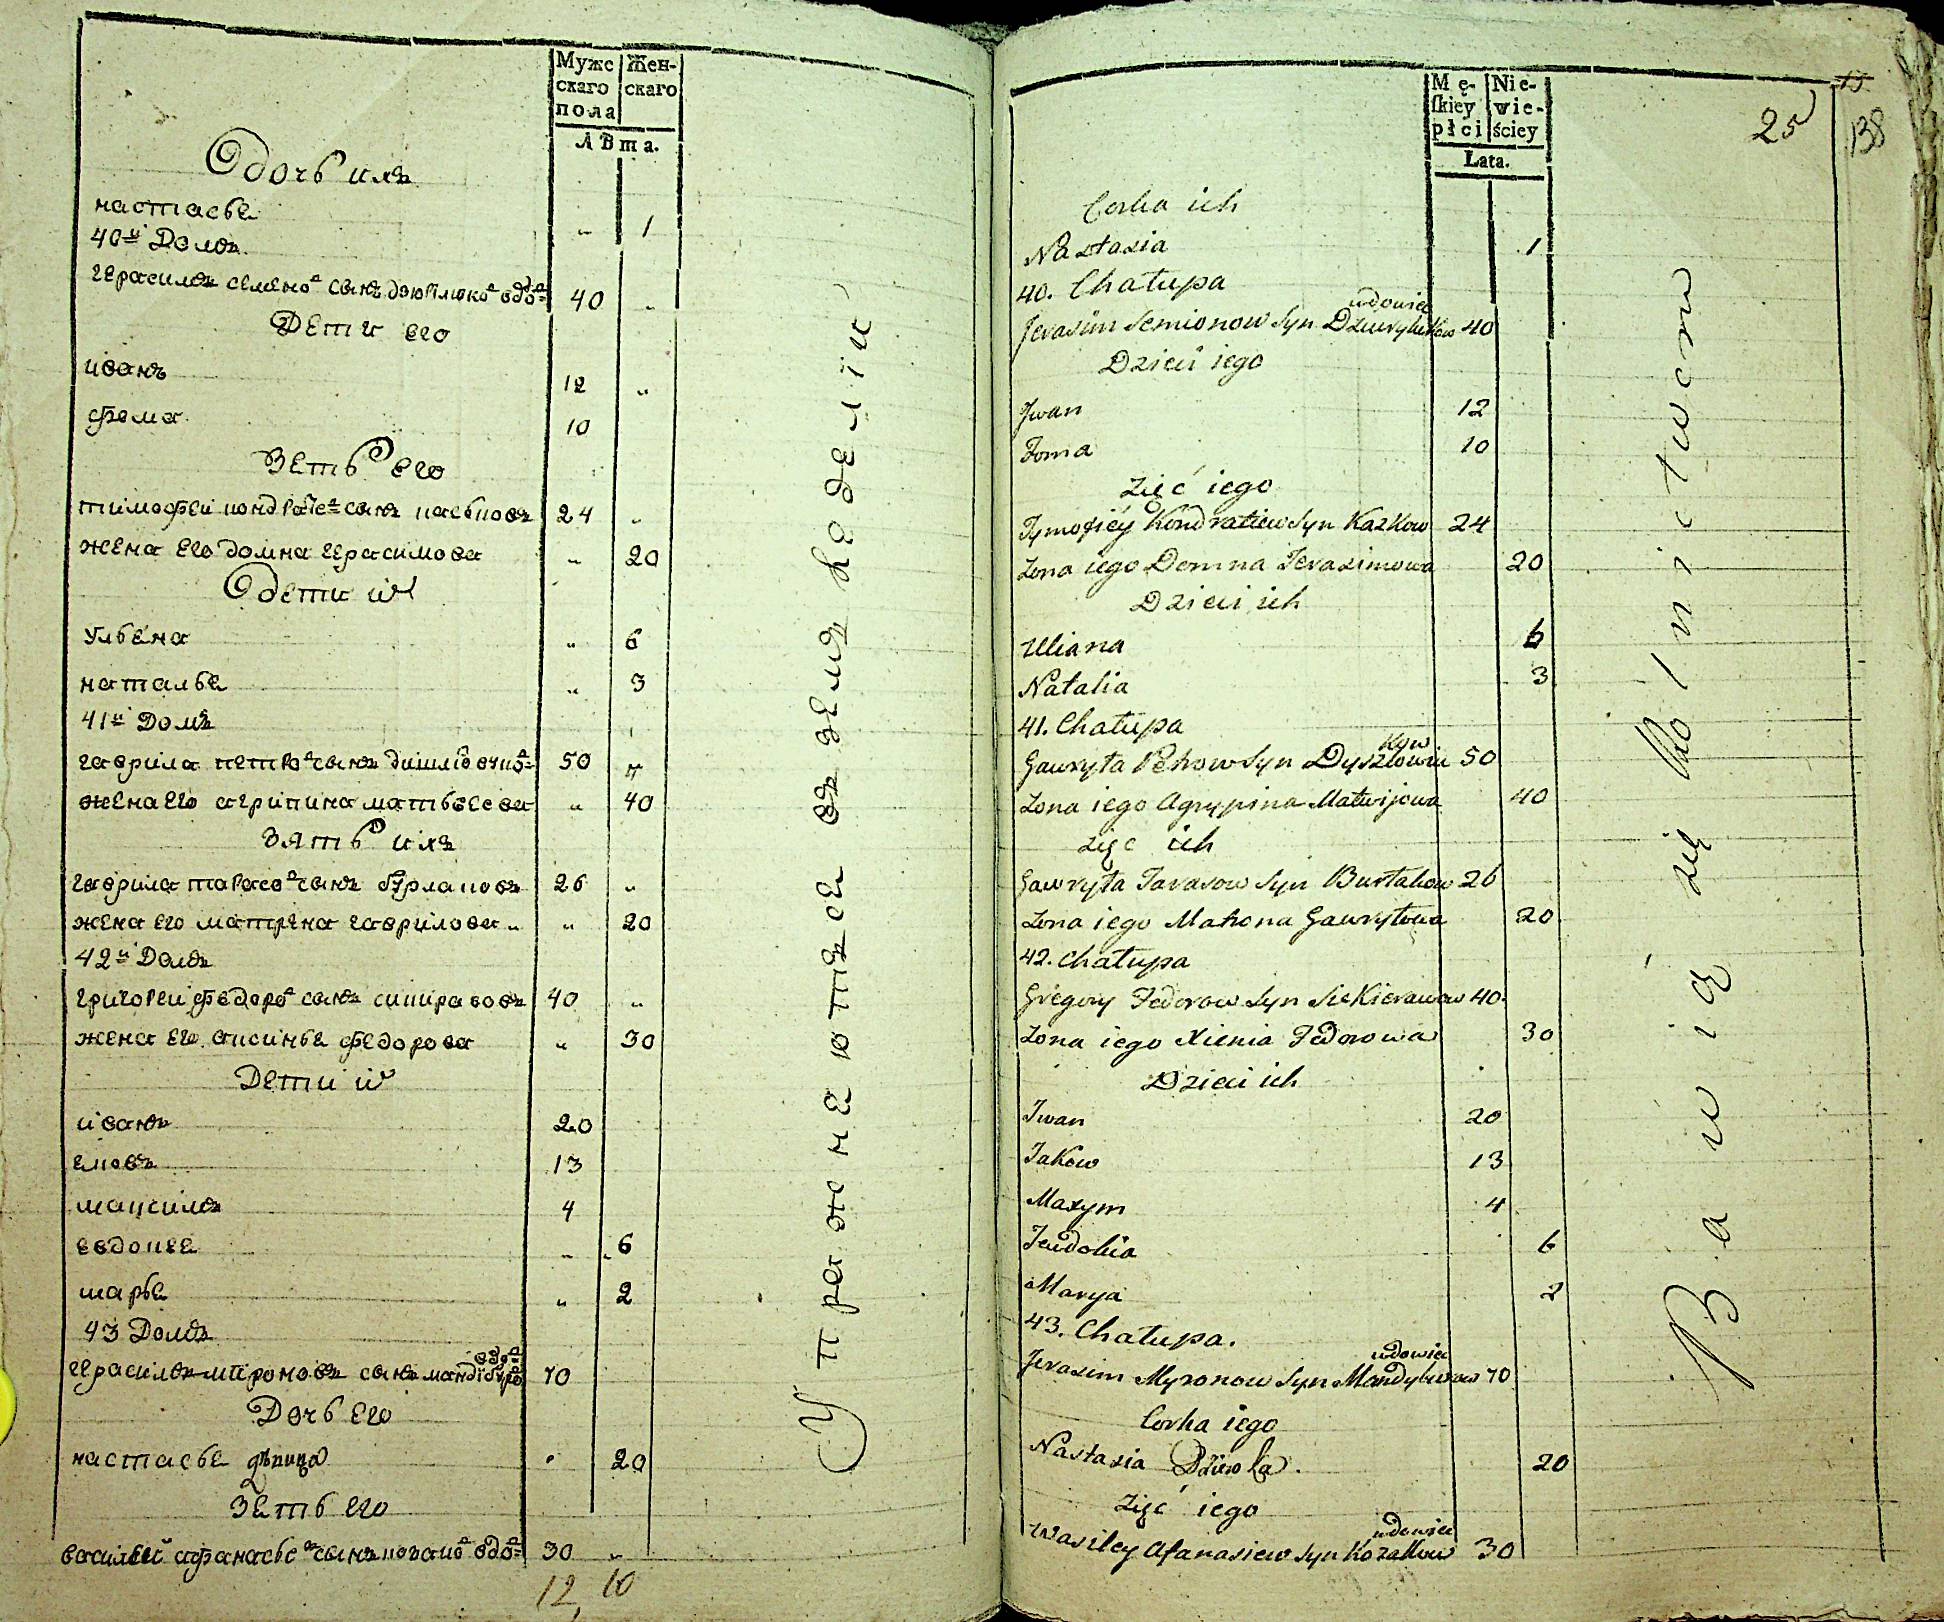 Мужс
скаго
пола
Жен-
скаго
Лѣта.
Одочь ихъ
настасья 1
40й Домъ
герасимъ семено сынъ 40
Дети его
иванъ 12
фома 10
Зеть его
тимофей кондратье сынъ казьковъ 24
жена его домна герасимова 20
Одети их
ульяна 6
наталья 3
41й Домъ
гаврила петро сынъ 50
жена его агрипина матвеева 40
Зять ихъ
гаврила тарасо сынъ бурлаковъ 26
жена его матрена гаврилова 20
42й Домъ
григорей федоро сынъ сикираовъ 40
жена его аксинья федорова 30
Дети их
иванъ 20
яковъ 13
максимъ 4
евдокея 6
марья 2
43 Домъ
герасимъ мироновъ сынъ 70
Дочь его
настасья дѣвица 20
Зеть его
василей афанасье сынъ козако вдо 30
12, 10
Упражнеются въ земледелiи
Mę-
ſkiey
płci
Nie-
wie-
ściey
Lata.
25
138
Corka ich
Nastasia 1
40. Chałupa
udowiec
Jerasim Semionow Syn 40
Dzieci iego
Jwan 12
Foma 10
Zięć iego
Tymofiéy Kondratiew Syn Kazkow 24
Zona iego Domna Jerasimowa 20
Dzieci ich
Uliana 6
Natalia 3
41. Chałupa
kow
Gawryła Petrow Syn Dyszlowiu 50
Zona iego Agrypina Matwijowa 40
Zięc ich
Gawryła Tarasow Syn Burłakow 26
Zona iego Matrona Gawryłowa 20
42. Chałupa
Gregory Fedorow Syn Siekierawow 40.
Zona iego Xienia Fedorowa 30
Dzieci ich
Iwan 20
Jakow 13
Maxym 4
Jeudokia 6
Marya 2
43. Chałupa.
udowiec
Jerasim Myronow Syn Mandyburow 70
Corka iego
Nastasia Dziewka. 20
Zięć iego
udowiec
Wasiley Afanasiew Syn Kozakow 30
Bawią się Rolnictwem